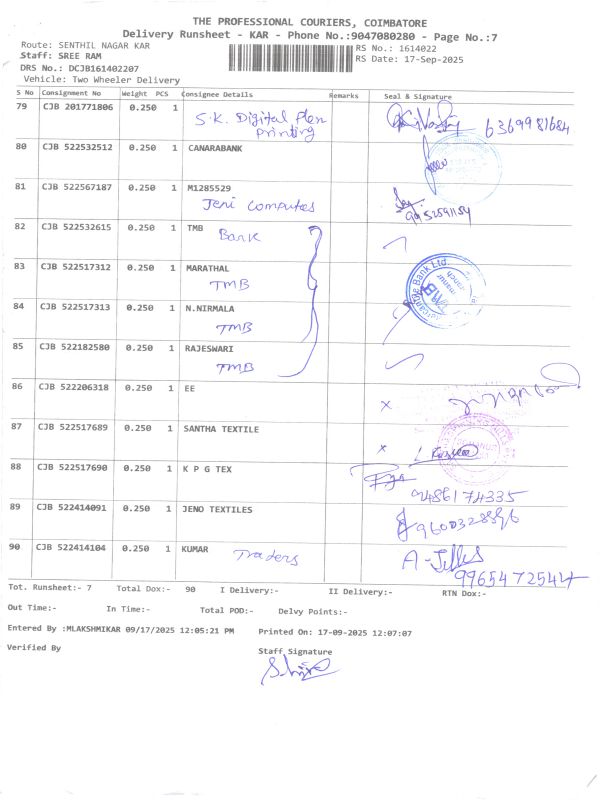 THE PROFESSIONAL COURIERS, COIMBATORE
Delivery Runsheet - KAR - Phone No.:9047080280 - Page No.:7
Route: SENTHIL NAGAR KAR RS No.: 1614022
Staff: SREE RAM RS Date: 17-Sep-2025
DRS No.: DCJB161402207
Vehicle: Two Wheeler Delivery
S No Consignment No Weight PCS Consignee Details Remarks Seal & Signature
79 CJB 201771806 0.250 1
S.K. Digital Flex
Printing
6369981684
80 CJB 522532512 0.250 1 CANARABANK
81 CJB 522567187 0.250 1 M1285529
Jeni Computes
9952591154
82 CJB 522532615 0.250 1 TMB
Bank
83 CJB 522517312 0.250 1 MARATHAL
TMB
Bank Ltd.
TMB
84 CJB 522517313 0.250 1 N.NIRMALA
TMB
85 CJB 522182580 0.250 1 RAJESWARI
TMB
86 CJB 522206318 0.250 1 EE
x
87 CJB 522517689 0.250 1 SANTHA TEXTILE
x
88 CJB 522517690 0.250 1 K P G TEX
9486174335
89 CJB 522414091 0.250 1 JENO TEXTILES
90 CJB 522414104 0.250 1 KUMAR
Traders
9965472544
Tot. Runsheet:- 7 Total Dox:- 90 I Delivery:- II Delivery:- RTN Dox:-
Out Time:- In Time:- Total POD:- Delvy Points:-
Entered By :MLAKSHMIKAR 09/17/2025 12:05:21 PM Printed On: 17-09-2025 12:07:07
Verified By Staff Signature